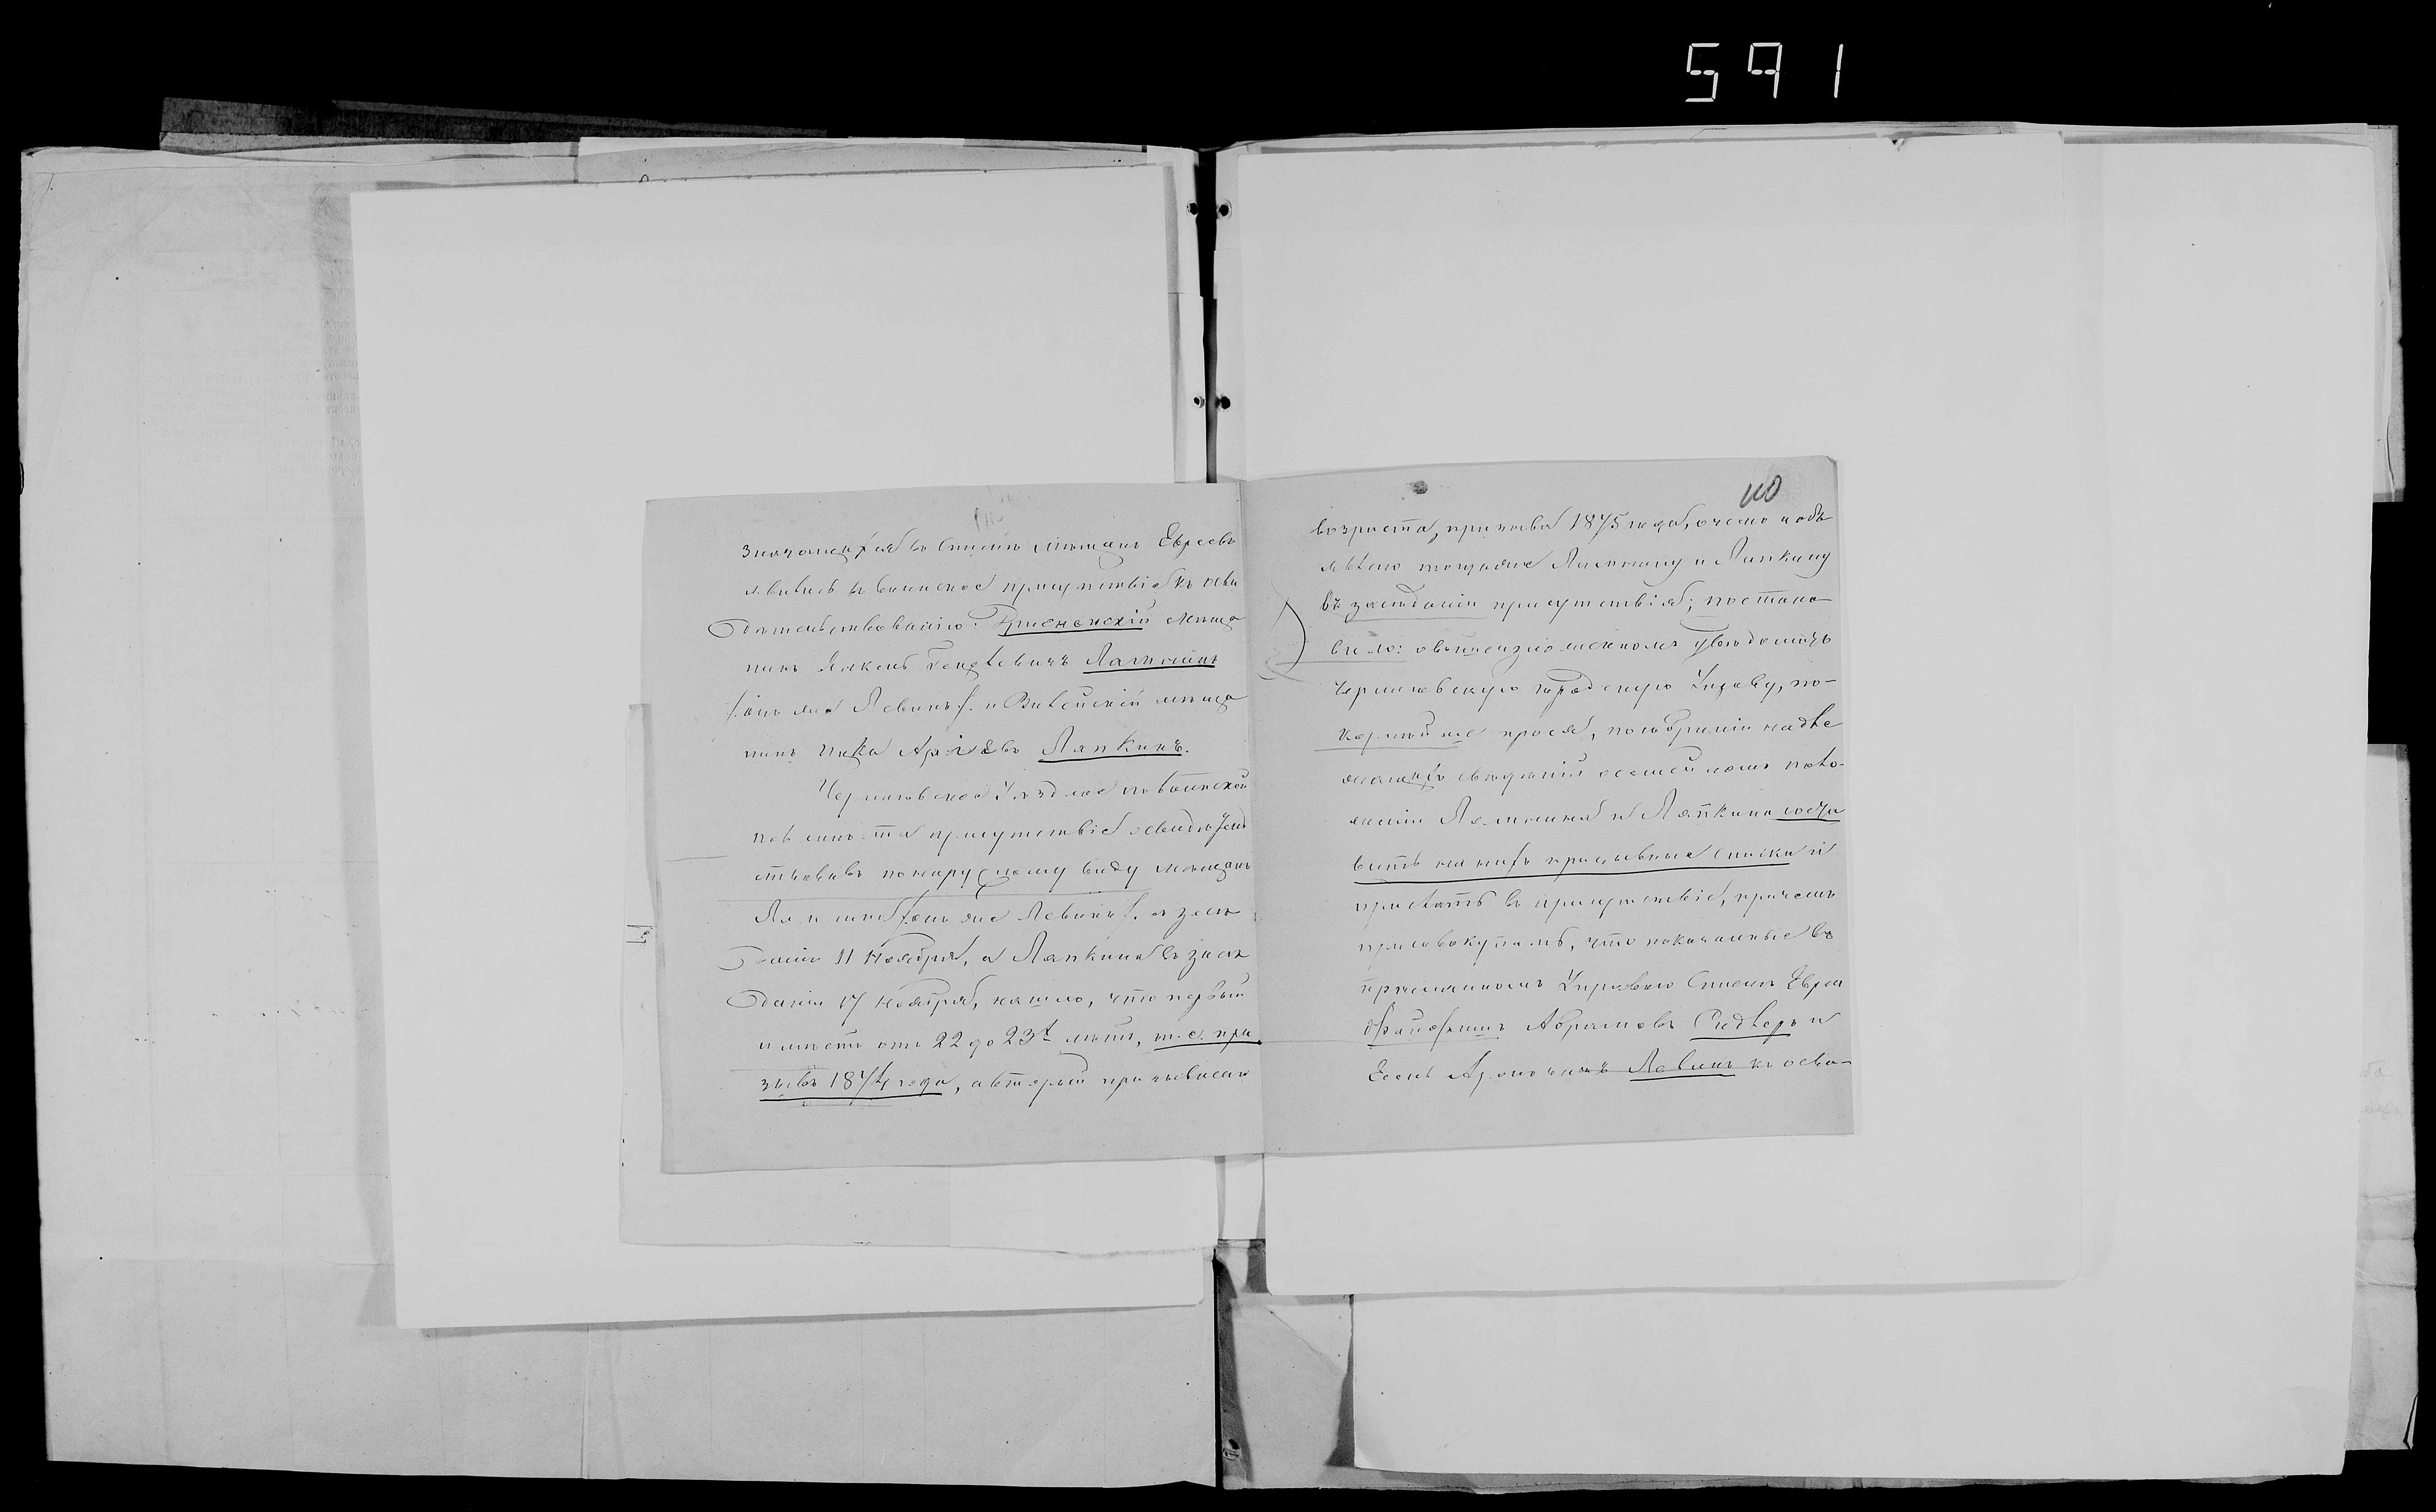 591
110
значащихся въ спискѣ мѣщанъ Евреевъ
явились въ воинское присутствіе къ осви
дѣтельствованію: мѣща
нинъ Лапшинъ
(онъ же Левинъ) и мѣща
нинъ Лапкинъ.
Черниговское Уѣздное по воинской
повинности присутствіе освидѣтель
ствовавъ по наружному виду мѣщанъ
Лапшина (онъ же Левинъ) въ засѣ
даніи 11 Ноября, а Лапкина въ засѣ
даніи 17 Ноября, нашло, что первый
имѣетъ отъ 22 до 23х лѣтъ, т. е. при
зывъ 1874 года, а вторый призывнаго
возраста, призыва 1875 года, о чемъ и объ
явлено тогда же Лапшину и Лапкину
въ засѣданіи присутствія; постано
вило: о вышеизложенномъ увѣдомить
Черниговскую городскую Управу, по-
корнѣйше прося, по собраніи надле
жащихъ свѣдѣній о семейномъ поло-
женіи Лапшина и Лапкина соста
вить на нихъ призывные списки и
прислать въ присутствіе, причемъ
присовокупить, что показанные въ
присланномъ Управою спискѣ Евреи
Абрамовъ и
Левинъ къ осви-